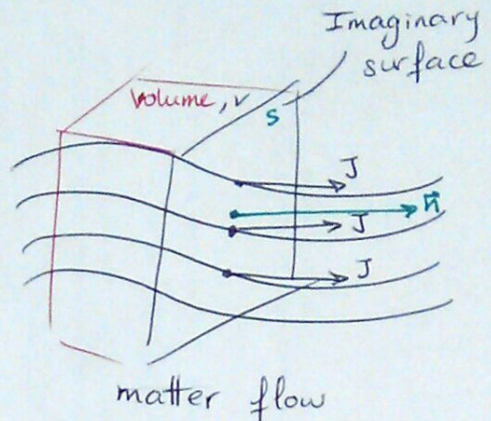 Imaginary
surface
Volume, V
S
J
n
J
J
matter flow